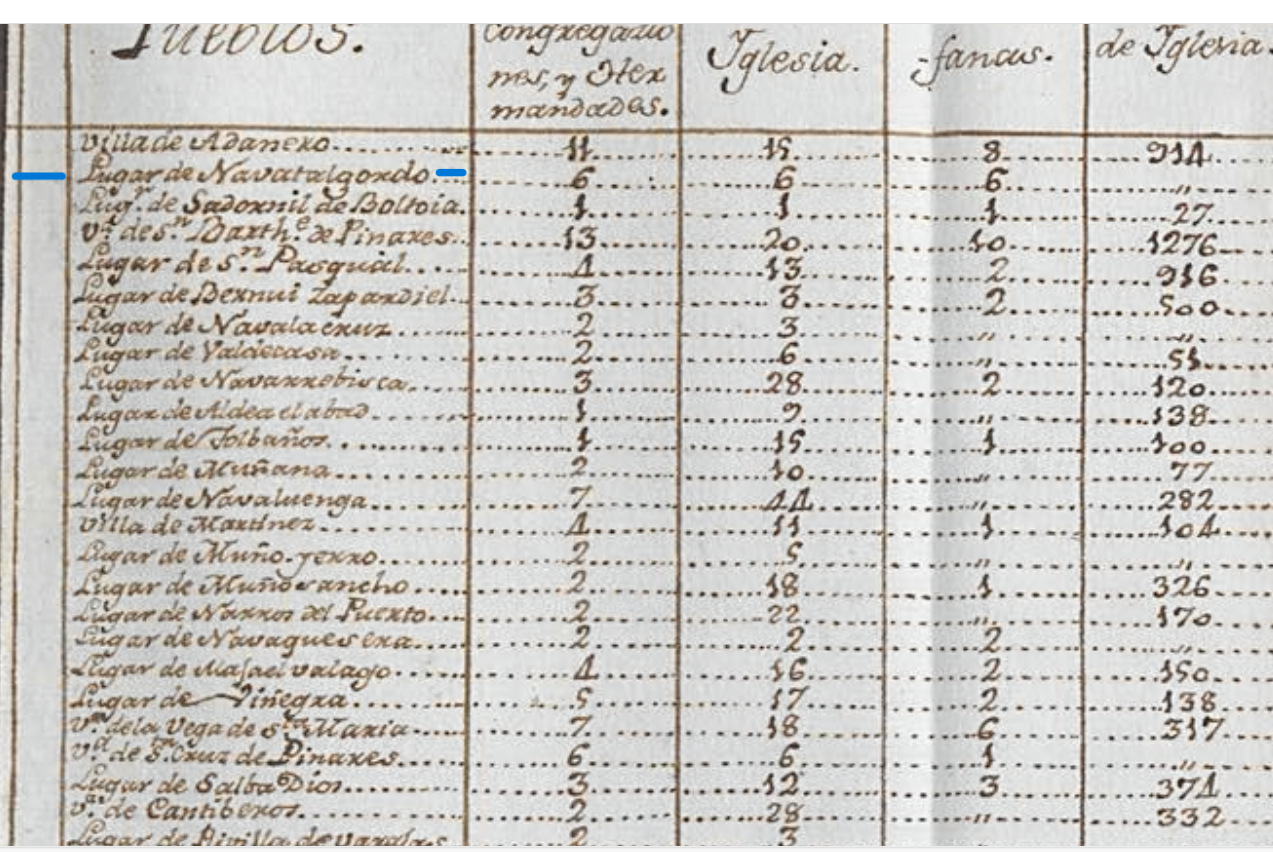 Pueblos. Congregacio Yglesia. fanas. de Yglesia.
nes, y Her
mandades.
Villa de Adanero 11 15 8 914
Lugar de Navatalgordo 6 6 6 "
Lug.r de Sadornil de Boltoia. 1 1 1 27
V.a de s.n Barth.e de Pinares 13 20 10 1276
Lugar de s.n Pasqual 4 13 2 916
Lugar de Bernui Zapardiel 3 3 2 500
Lugar de Navalacruz 2 3 " "
Lugar de Valdecasa 2 6 " 51
Lugar de Navarrebisca 3 28 2 120
Lugar de Aldea el abad 1 9 " 138
Lugar de Tolbaños 1 15 1 100
Lugar de Muñana 2 10 " 77
Lugar de Navaluenga 7 44 " 282
Villa de Martinez 4 11 1 104
Lugar de Muño-yerro 2 5 " "
Lugar de Muñosancho 2 18 1 326
Lugar de Narros del Puerto 2 22 " 170
Lugar de Navaquesera 2 2 2 "
Lugar de Majaelvalago 4 16 2 150
Lugar de Viniegra 5 17 2 138
V.a de la Vega de s.ta Maria 7 18 6 317
V.a de S.ta Cruz de Pinares 6 6 1 "
Lugar de Salba Dios 3 12 3 374
V.a de Cantiberos 2 28 " 332
Lugar de 2 3